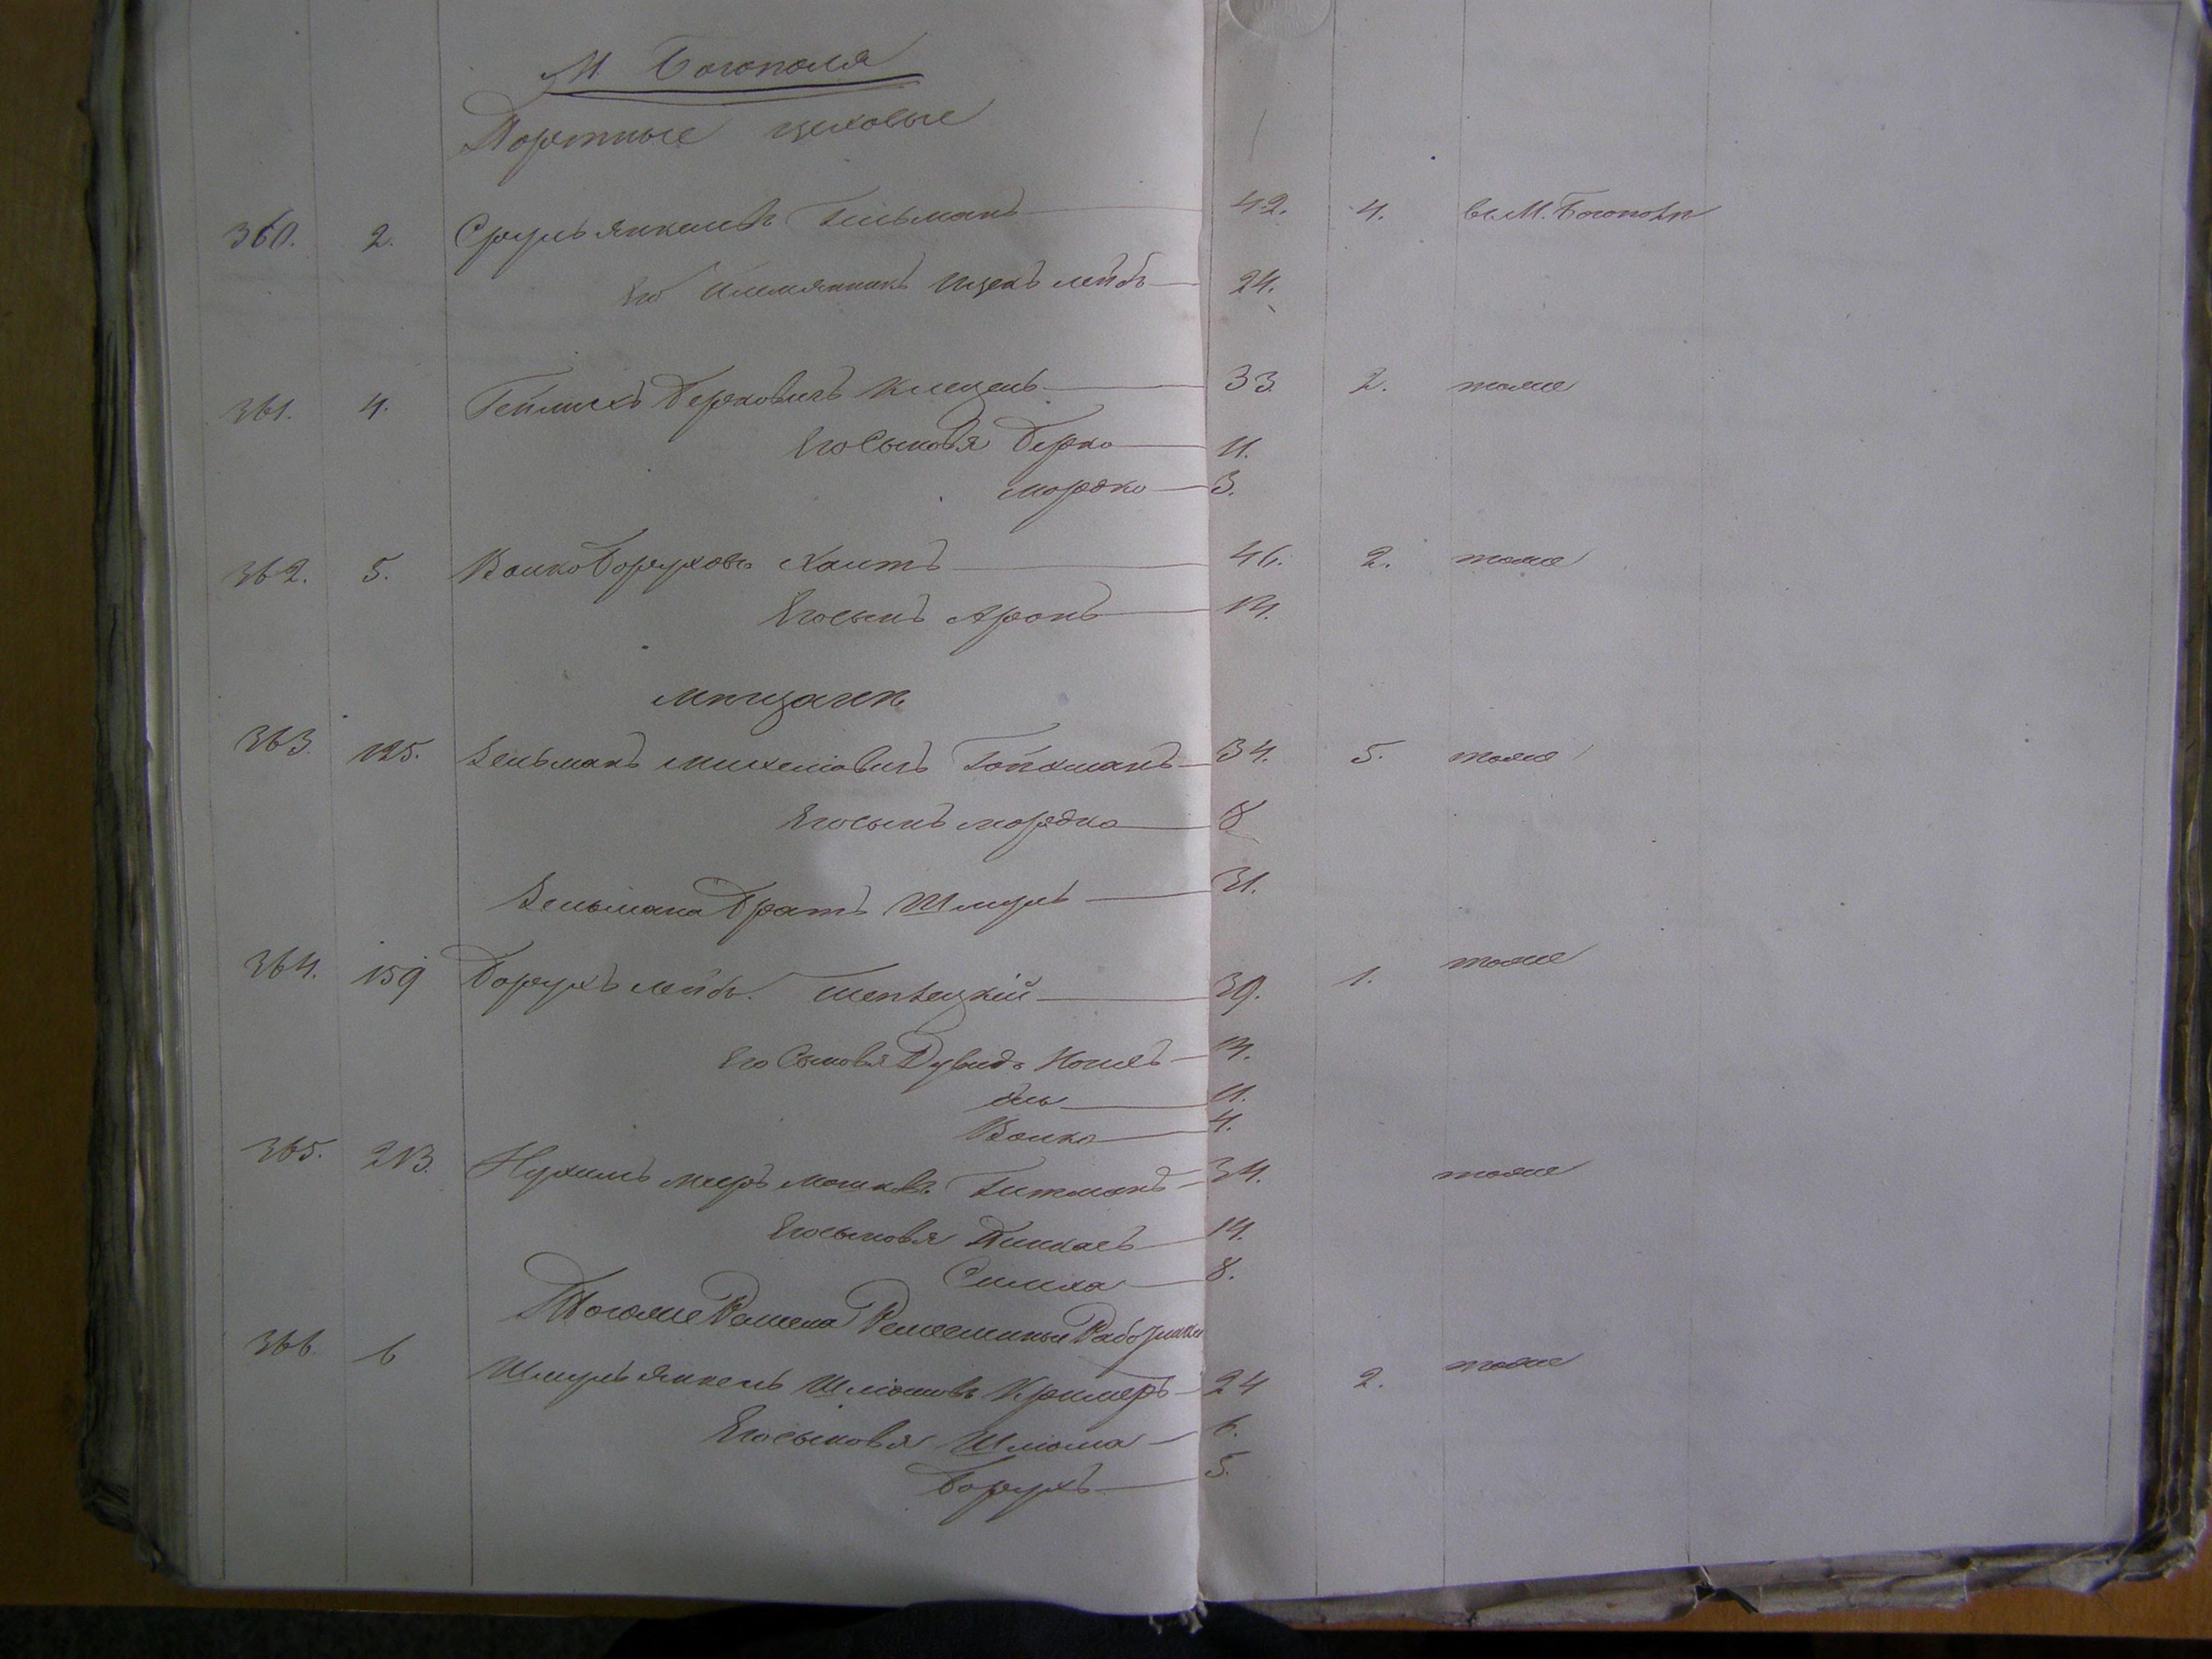 М. Богополя
Портные цеховые
360. 2. Сруль Янкелев Гильманъ 42. 4. въ М. Богополе
Его племянникъ Ицекъ Лейбъ 24.
361. 4. Берковичъ 33. 2. тоже
Его сыновья Берко 11.
Мордко 3.
362. 5. Волко Борухов. 46. 2. тоже
Его сынъ Аронъ 14.
Мещане
363. 125. Зельманъ Михеліовичъ Гойхманъ 34. 5. тоже
Его сынъ Мордко 8
Зельмана братъ Шмуль 31.
364. 159 Борухъ Лейб. 39. 1. тоже
Его сыновья Дувидъ 14.
11.
Волко 4.
365. 213. Нухимъ Мееръ Мошков. Гитманъ 34. тоже
Его сыновья Пинхасъ 14.
Симха 8.
Тогоже
366 6 Шмуль Янкель Шліомовъ Кримеръ 24 2. тоже
Его сыновья Шліома 6.
Борухъ 5.